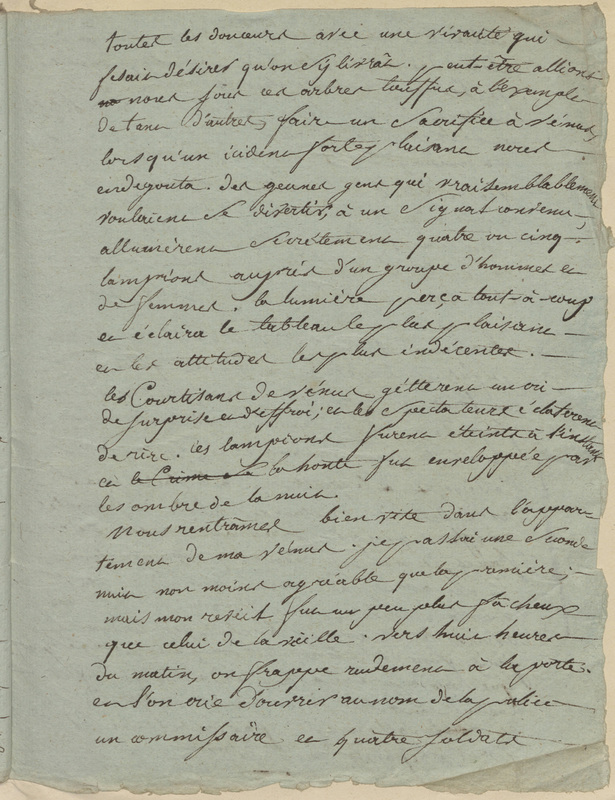 toutes les douceurs avec une vivacité qui
fesait désirer qu'on s'y livrât. peut-être allions
nous sous ces arbres touffus, à l'exemple
de tant d'autres, faire un sacrifice à vénus,
lorsqu'un icident fort plaisant nous
en degouta. des jeunes gens qui vraisemblablement
voulaient se divertir, à un signal convenu,
allumérent secrétement quatre ou cinq
lampions auprès d'un groupe d'hommes et
de femmes. la lumière perça tout-à-coup
et éclaira le tableau le plus plaisant
et les attitudes les plus indécentes.
les Courtisans de vénus gétterent un cri
de surprise et d'effroi; et les spectateurs éclaterent
de rire. les lampions furent éteints à l'instant
et le Crime et la honte fut enveloppée par
les ombre de la nuit.
Nous rentrâmes bien vite dans l'appar=
tement de ma vénus. je passai une seconde
nuit non moins agréable que la première;
mais mon reveil fut un peu plus fâcheux
que celui de la veille. vers huit heures
du matin, on frappe rudement à la porte.
et l'on crie d'ouvrir au nom de la police
un commissaire et quatre soldats